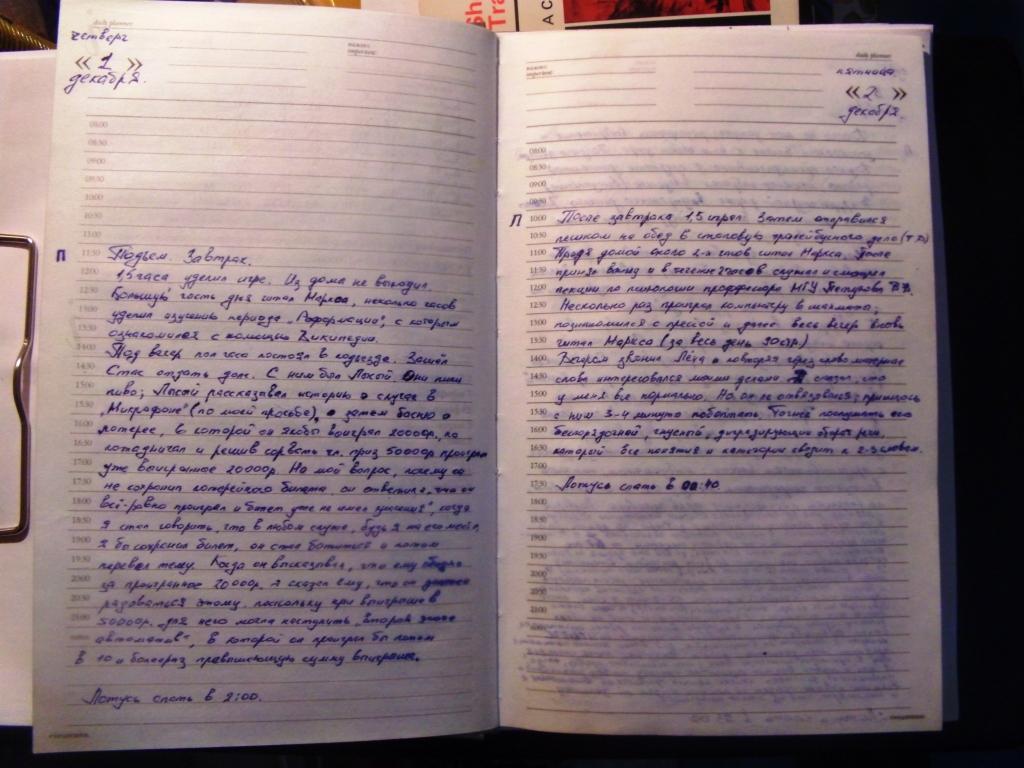 Sh
Tra
A C
daily planner
четверг
важно:
important:
« 1 »
декабря.
08:00
08:30
09:00
09:30
10:00
10:30
11:00
П 11:30 Подъем. Завтрак.
12:00 1,5 часа уделил игре. Из дома не выходил.
12:30 Большую часть дня читал Маркса, несколько часов
13:00 уделил изучению периода „Реформации", с которым
13:30 ознакомился с помощью Википедии.
14:00 Под вечер пол часа постоял в подъезде. Зашёл
14:30 Стас отдать долг. С ним был Лохой. Они пили
15:00 пиво; Лохой рассказывал историю о случае в
15:30 „Микрофоне" (по моей просьбе), а затем басню о
16:00 лотерее, в которой он якобы выиграл 20000р, но
16:30 и решив сорвать гл. приз 50000р проиграл
17:00 уже выигранное 20000р. На мой вопрос, почему он
17:30 не сохранил лотерейного билета, он ответил, „что он
18:00 всё-равно проиграл и билет уже не имел значения", когда
18:30 я стал говорить, что в любом случае, будь я на его месте,
19:00 я бы сохранил билет, он стал и потом
19:30 перевел тему. Когда он высказывал, что ему обидно
20:00 за проигранное 20000р. я сказал ему, что он должен
20:30 радоваться этому, поскольку при выигрыше в
21:00 50000р. для него могла наступить „вторая эпоха
автоматов", в которой он проиграл бы потом
в 10 и более раз превышающую сумму выигрыша.
Ложусь спать в 2:00.
важно:
important:
daily planner
пятница
« 2 »
декабря.
08:00
08:30
09:00
09:30
П 10:00 После завтрака 1,5 играл. Затем отправился
10:30 пешком на обед в столовую тралейбусного депо (т.2)
11:00 Придя домой около 2-х часов читал Маркса. После
11:30 принял ванну и в течение 2 часов слушал и смотрел
12:00 лекции по психологии проффесора МГУ Петухова В.В.
12:30 Несколько раз проиграл компьютеру в шахматы;
13:00 познакомился с прессой и далее весь вечер вновь
13:30 читал Маркса (за весь день 90стр.)
14:00 Вечером звонил Лёха и повторяя через слово матерные
14:30 слова интересовался моими делами. Я сказал, что
15:00 у меня все нормально. Но он не отвязывался; пришлось
15:30 с ним 3-4 минуты поболтать, точней послушать его
16:00 беспорядочной, глупый, деградирующий оборот речи,
16:30 который все понятия и категории сводит к 2-3 словам.
17:00
17:30 Ложусь спать в 00:40.
18:00
18:30
19:00
19:30
20:00
20:30
21:00